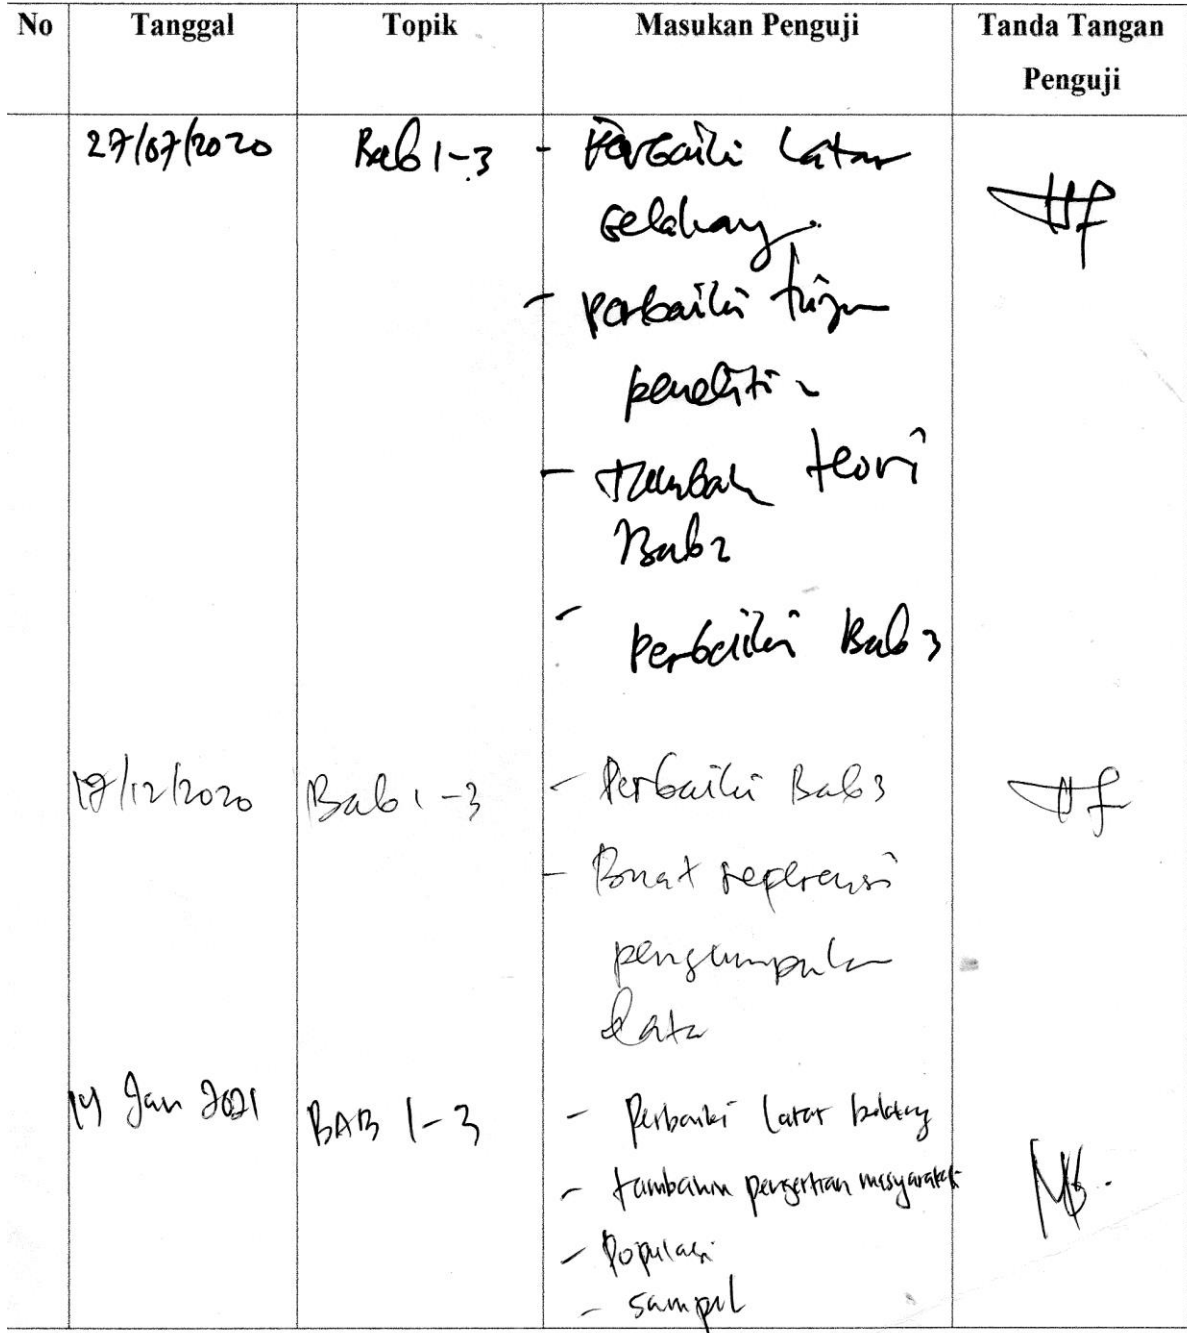 No Tanggal Topik Masukan Penguji Tanda Tangan
Penguji
27/07/2020 Bab 1-3 - Perbaiki Latar
belakang.
- Perbaiki tujuan
peneliti
- Tambah teori
Bab 2
- Perbaiki Bab 3
17/12/2020 Bab 1-3 - Perbaiki Bab 3
- Buat referensi
pengumpulan
data
14 Jan 2021 BAB 1-3 - Perbaiki latar belakang
- tambahin pengertian masyarakat
- Populasi
- sampel